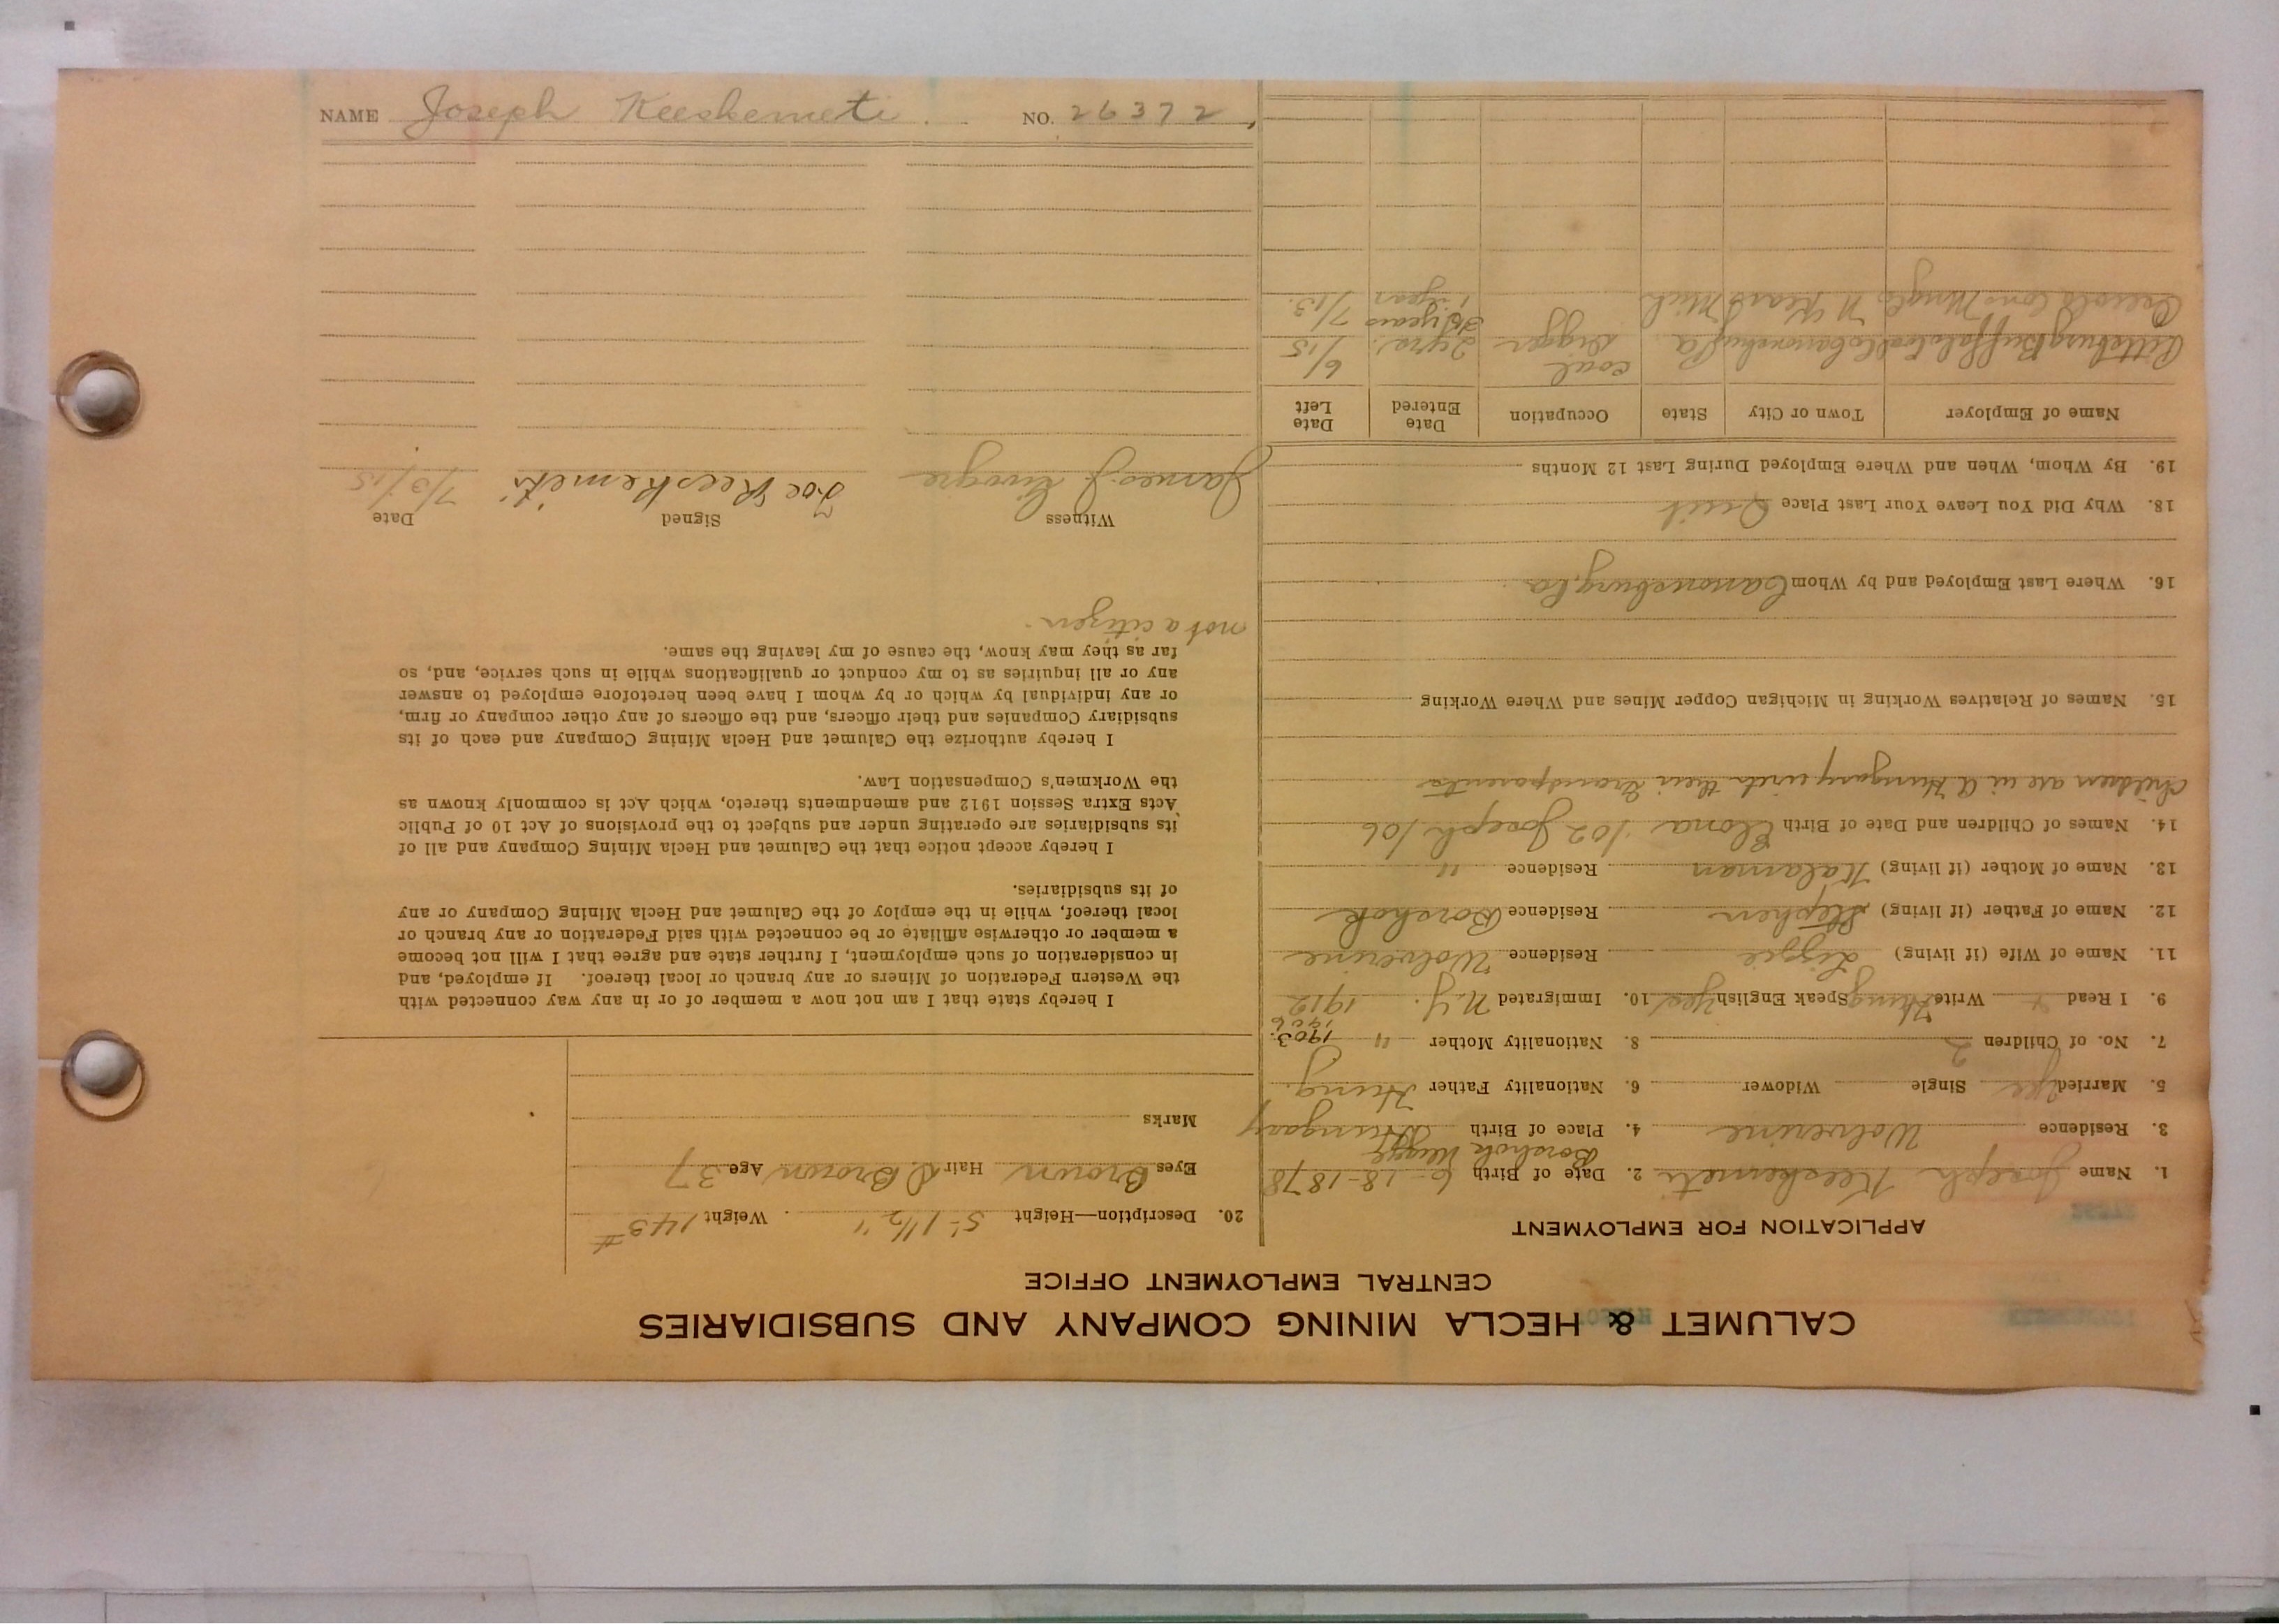 CALUMET & HECLA MINING COMPANY AND SUBSIDIARIES
CENTRAL EMPLOYMENT OFFICE
APPLICATION FOR EMPLOYMENT
1. Name Joseph Keeskemeti 2. Date of Birth 6-18-1878
3. Residence Wolverine 4. Place of Birth Hungary
5. Married yes Single Widower 6. Nationality Father Hung.
7. No. of Children 2 8. Nationality Mother "
1903
1906
9. I Read + Write Hung Speak English yes 10. Immigrated N.Y. 1912
11. Name of Wife (if living) Lizzie Residence Wolverine
12. Name of Father (if living) Stephen Residence Borshok
13. Name of Mother (if living) Kalaman Residence "
14. Names of Children and Date of Birth Elona '02 Joseph '06
Children are in A Hungary with their Grandparents
15. Names of Relatives Working in Michigan Copper Mines and Where Working
16. Where Last Employed and by Whom Canonsburg, Pa
18. Why Did You Leave Your Last Place Quit
19. By Whom, When and Where Employed During Last 12 Months
Name of Employer Town or City State Occupation Date Entered Date Left
Pittsburg Buffalo Coal Co Canonsburg Pa. Coal Digger 2 yrs. 6/15
N Kears Mich 1 year 7/13.
20. Description—Height 5'-11½" Weight 143#
Eyes Brown Hair D Brown Age 37
Marks
I hereby state that I am not now a member of or in any way connected with
the Western Federation of Miners or any branch or local thereof. If employed, and
in consideration of such employment, I further state and agree that I will not become
a member or otherwise affiliate or be connected with said Federation or any branch or
local thereof, while in the employ of the Calumet and Hecla Mining Company or any
of its subsidiaries.
I hereby accept notice that the Calumet and Hecla Mining Company and all of
its subsidiaries are operating under and subject to the provisions of Act 10 of Public
Acts Extra Session 1912 and amendments thereto, which Act is commonly known as
the Workmen's Compensation Law.
I hereby authorize the Calumet and Hecla Mining Company and each of its
subsidiary Companies and their officers, and the officers of any other company or firm,
or any individual by which or by whom I have been heretofore employed to answer
any or all inquiries as to my conduct or qualifications while in such service, and, so
far as they may know, the cause of my leaving the same.
not a citizen.
Witness Signed Date
James J. Joe Keeskemeti 7/3/15
NAME Joseph Keeskemeti. NO. 26372